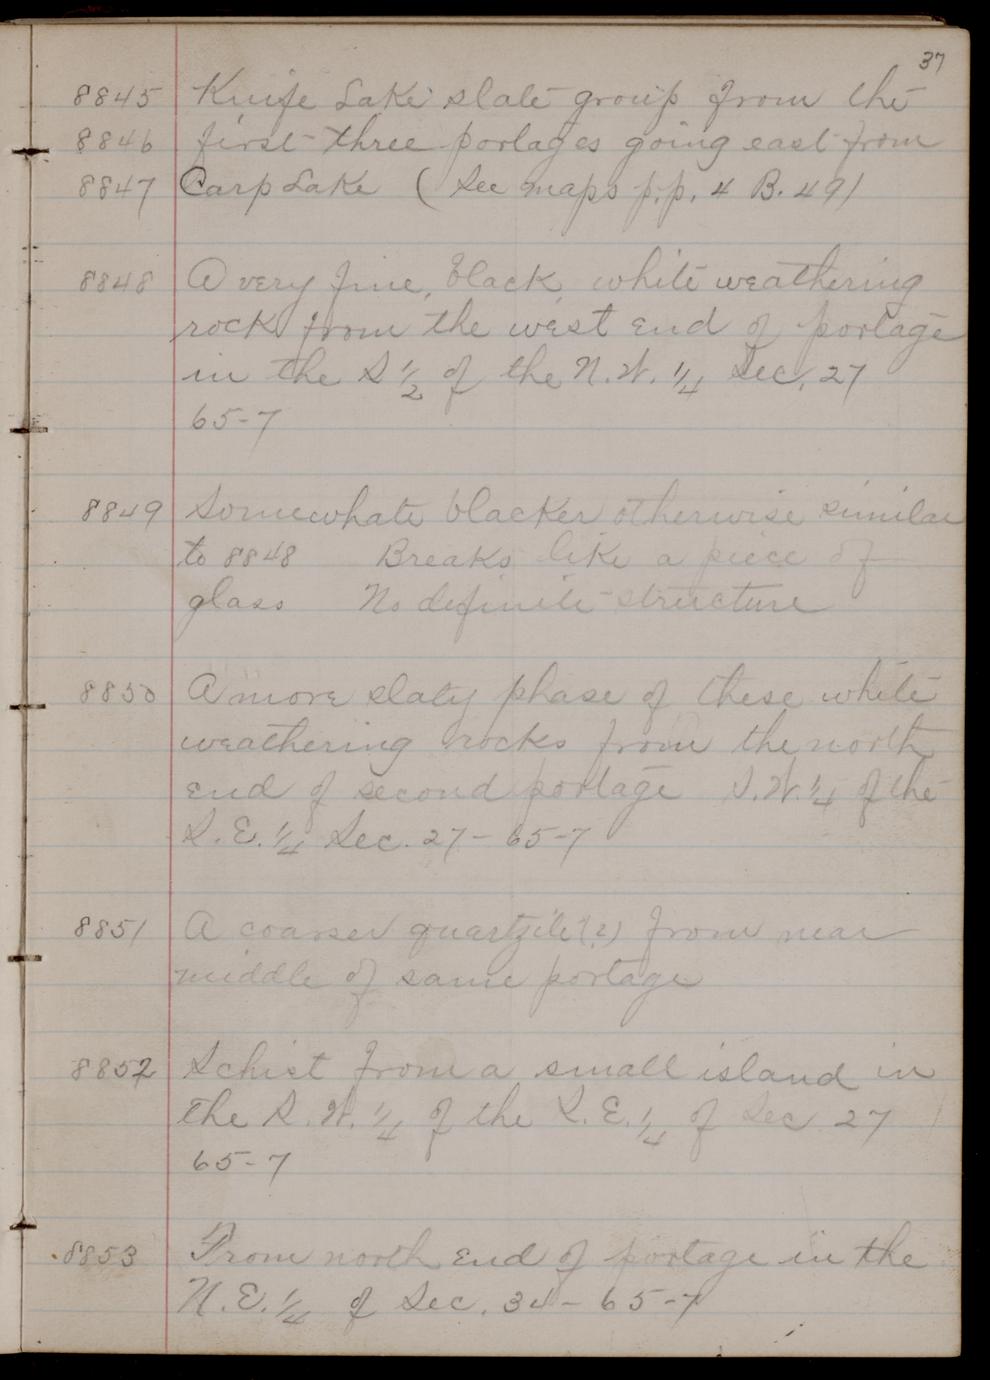 37
8845 Knife Lake slate group from the
8846 first three portages going east from
8847 Carp Lake (See maps p.p. 4 B. 49)
8848 A very fine, black, white weathering
rock from the west end of portage
in the S 1/2 of the N.W. 1/4 Sec. 27
65-7
8849 Somewhate blacker otherwise similar
to 8848 Breaks like a piece of
glass No definite structure
8850 A more slaty phase of these white
weathering rocks from the north
end of second portage S.W. 1/4 of the
S.E. 1/4 Sec. 27-65-7
8851 A coarser quartzite(?) from near
middle of same portage
8852 Schist from a small island in
the S.W. 1/4 of the S.E. 1/4 of Sec 27
65-7
8853 From north end of portage in the
N.E. 1/4 of Sec. 34-65-7